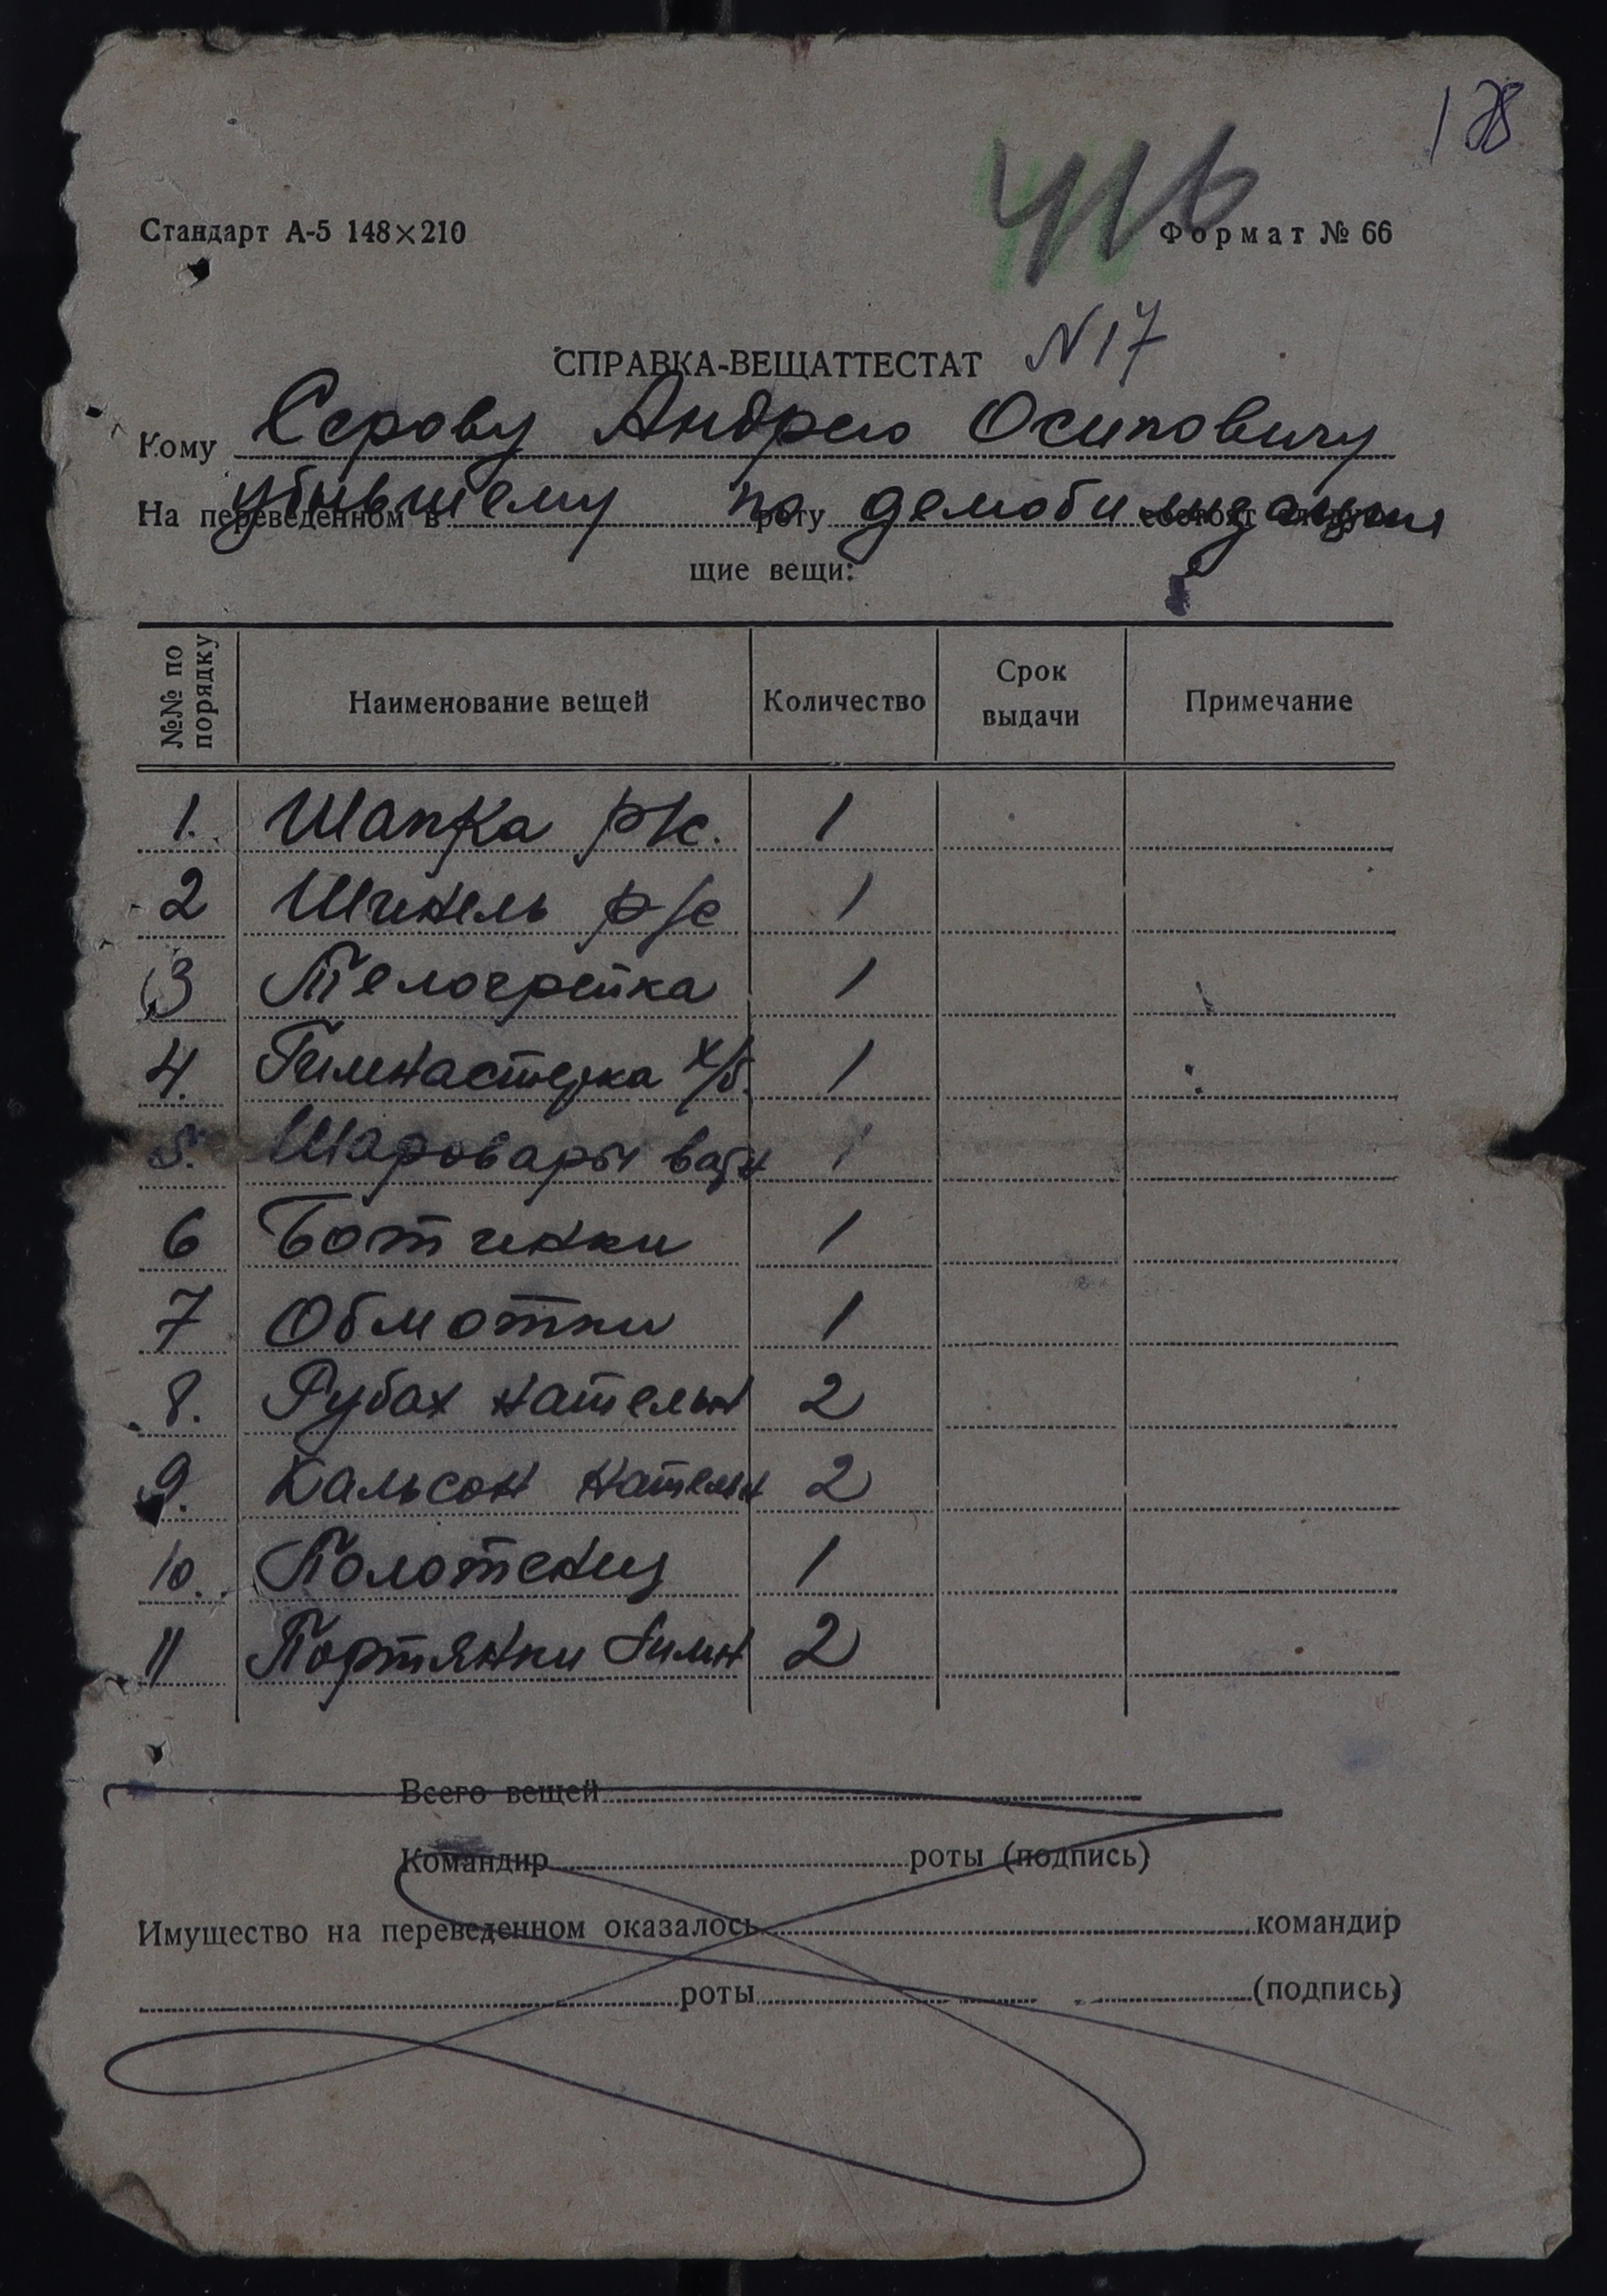 128
416
Стандарт А-5 148×210 Формат № 66
СПРАВКА-ВЕЩАТТЕСТАТ N 17
Кому Серову Андрею Осиповичу
На переведенном в роту состоят
убывшему по демобилизации
щие вещи:
№№ по порядку Наименование вещей Количество Срок выдачи Примечание
1. Шапка р/с. 1
2 Шинель р/с 1
3 Телогрейка 1
4. Гимнастерка х/б. 1
5. Шаровары ватн 1
6 Ботинки 1
7 Обмотки 1
8. Рубах нательн 2
9. Кальсон нательн 2
10. Полотенец 1
11 Портянки зимн 2
Всего вещей
Командир роты (подпись)
Имущество на переведенном оказалось командир
роты (подпись)